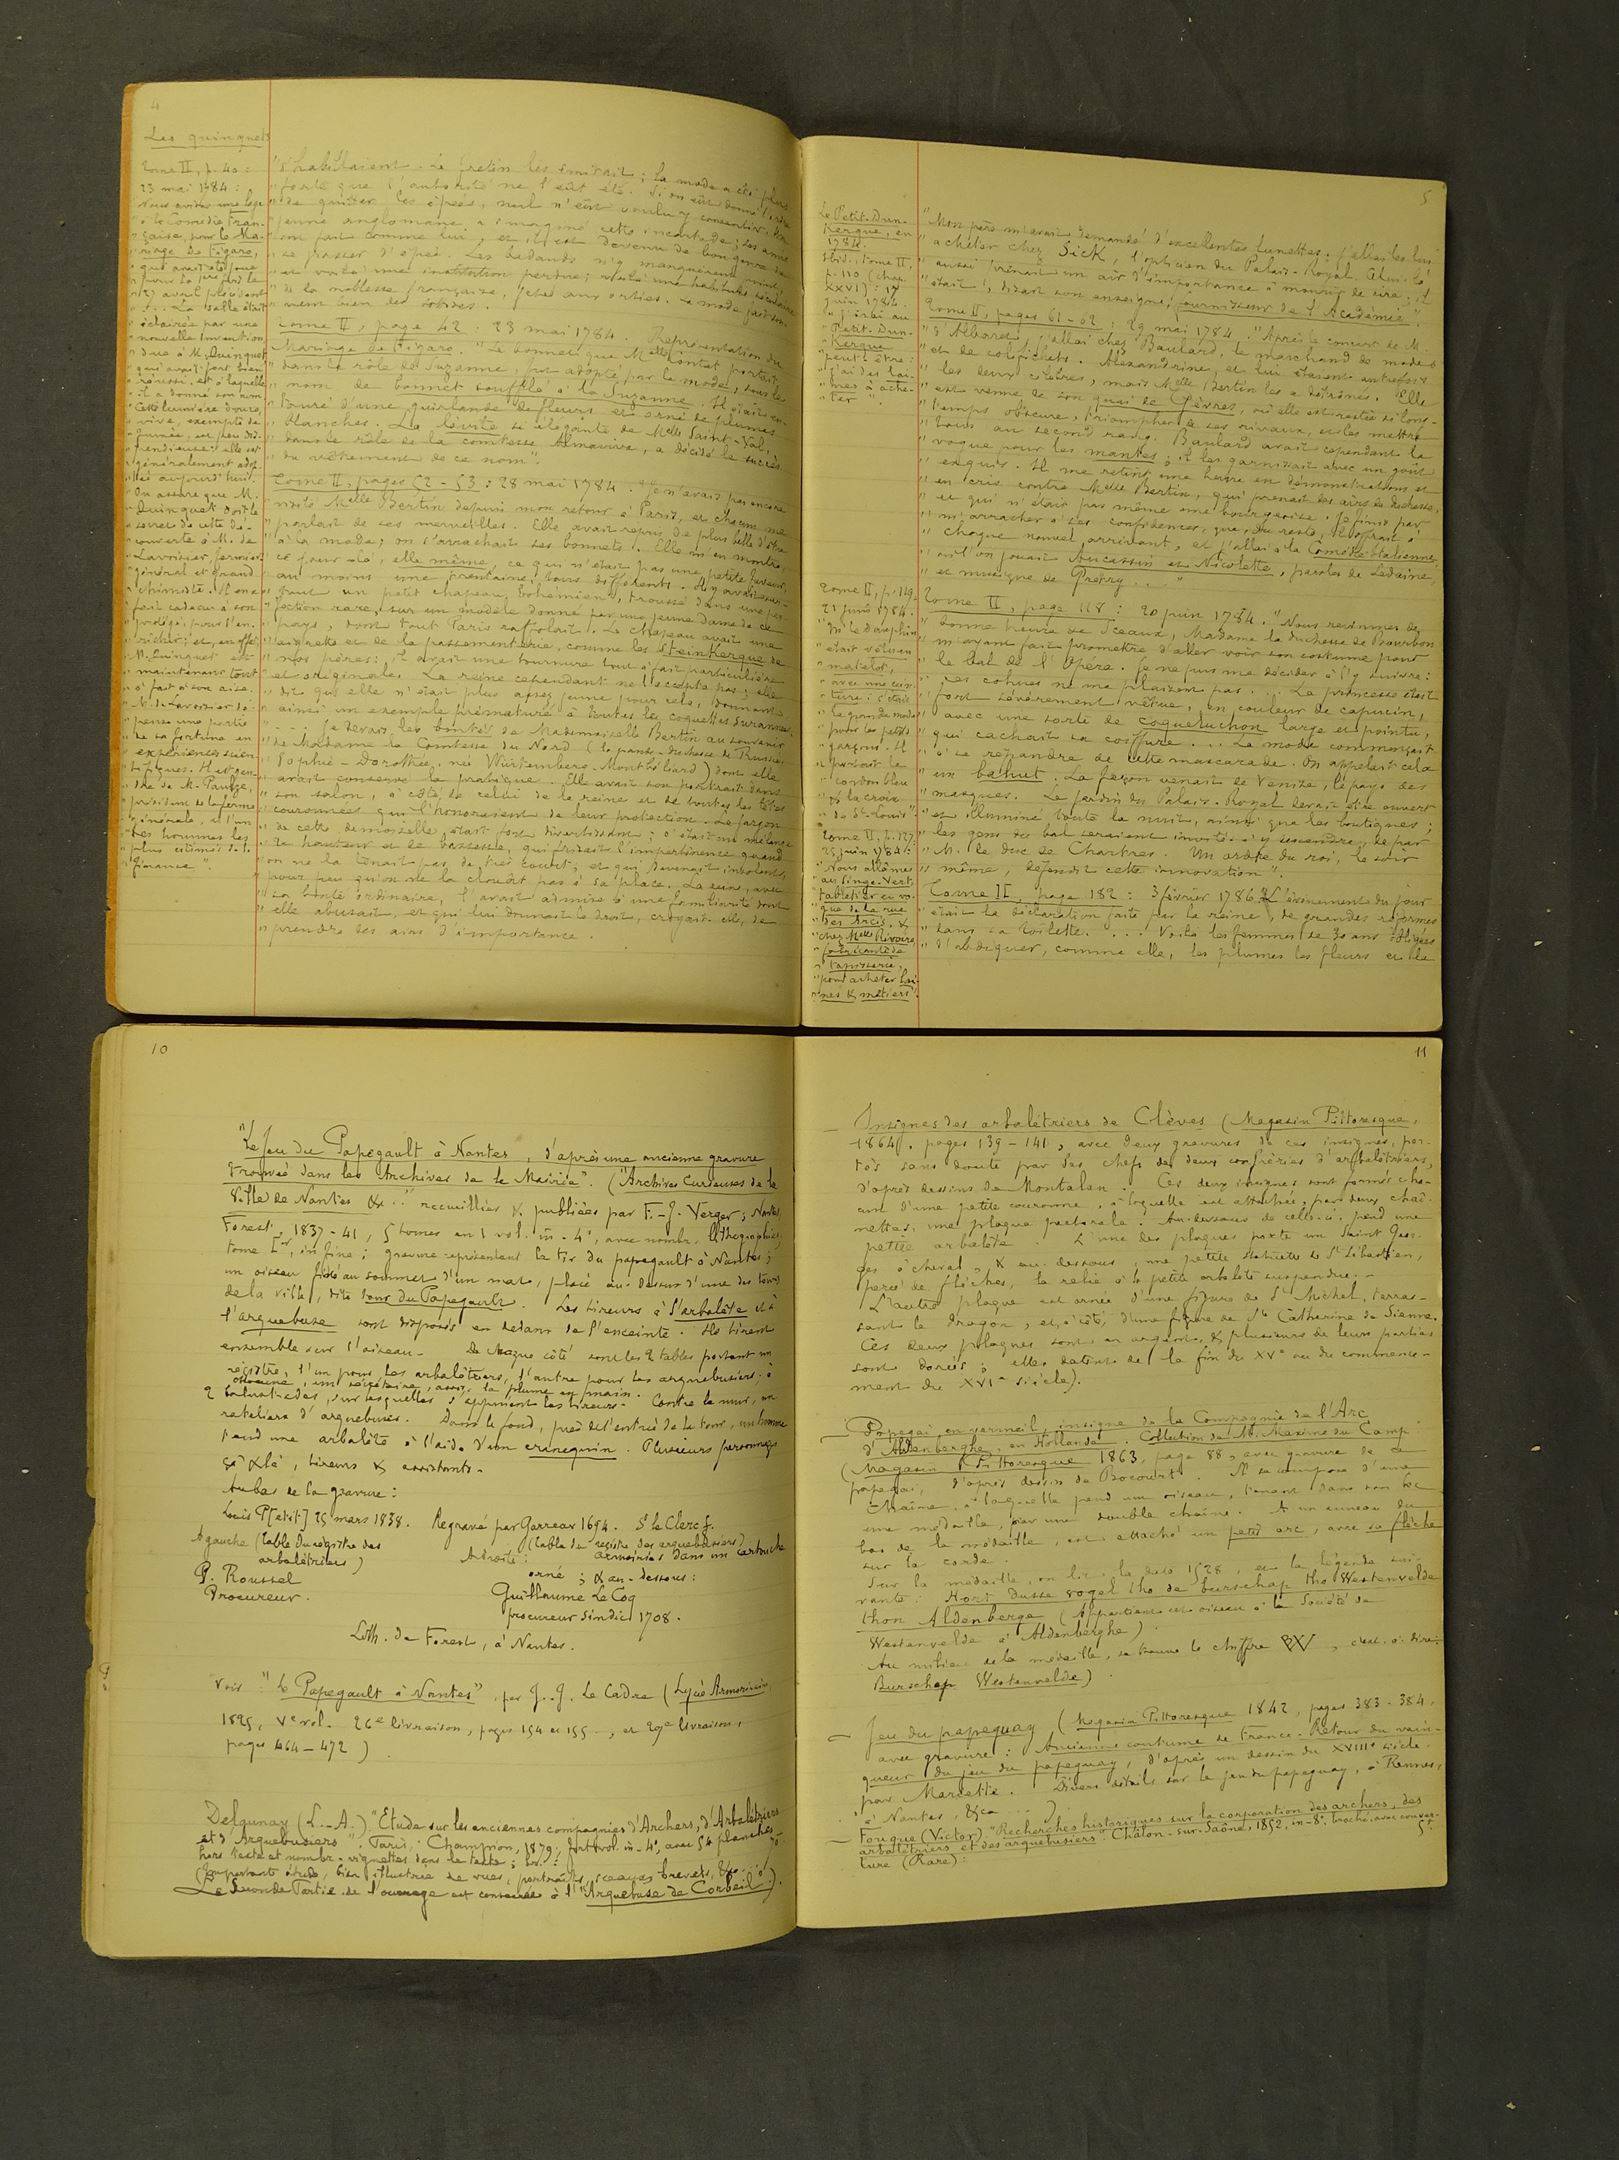 4
Les quinquets
Tome II, p. 40 :
23 mai 1784 :
Nous avions une loge
" à la Comédie Fran-
" çaise, pour le Ma-
" riage de Figaro,
" qui avait été joué
" pour la 1ère fois le
" 27 avril précédent
" ... La salle était
" éclairée par une
" nouvelle invention
" due à M. Quinquet
" qui avait fort bien
" réussi, et à laquelle
" il a donné son nom.
" Cette lumière douce,
" vive, exempte de
" fumée, est peu dis-
" pendieuse: elle est
" généralement adop-
" tée aujourd'hui.
" On assure que M.
" Quinquet doit le
" secret de cette dé-
" couverte à M. de
" Lavoisier, fermier
" général et grand
" chimiste. Il en a
" fait cadeau à son
" protégé, pour l'en-
" richir; et, en effet
" M. Quinquet est
" maintenant tout
" à fait à son aise.
" M. de Lavoisier dé-
" pense une partie
" de sa fortune en
" expériences scien-
" tifiques. Il est gen-
" dre de M. Paulze,
" président de la ferme
" générale, et l'un
" des hommes les
" plus estimés de la
" finance ".
" s'habillaient. Le fretin les imitait ; la mode a été plus
" forte que l'autorité ne l'eût été. Si on eût donné l'ordre
" de quitter les épées, nul n'eût voulu y consentir. Un
" jeune anglomane a imaginé cette incartade ; ses amis
" ont fait comme lui, et il est devenu de bon genre de
" se passer d'épée. Les badauds n'y manquèrent point,
" et voilà une institution perdue ; voilà une habitude séculaire
" de la noblesse française, jetée aux orties. La mode fait sou-
" vent bien des sottises.
Tome II, page 42 : 23 mai 1784. Représentation du
Mariage de Figaro. " Le bonnet que Melle Contat portait
" dans le rôle de Suzanne, fut adopté par la mode, sous le
" nom de bonnet soufflé à la Suzanne. Il était en-
" touré d'une guirlande de fleurs et orné de plumes
" blanches. La lévite si élégante de Melle Saint-Val,
" dans le rôle de la comtesse Almaviva, a décidé le succès
" du vêtement de ce nom ".
Tome II, pages 52 - 53 : 28 mai 1784. " Je n'avais pas encore
" visité Melle Bertin depuis mon retour à Paris, et chacun me
" parlait de ses merveilles. Elle avait repris de plus belle d'être
" à la mode ; on s'arrachait ses bonnets. Elle m'en montra,
" ce jour-là, elle même, ce qui n'était pas une petite faveur,
" au moins une trentaine, tous différents. Il y avait sur-
" tout un petit chapeau bohémien, troussé dans une per-
" fection rare, sur un modèle donné par une jeune dame de ce
" pays, dont tout Paris raffolait. Le chapeau avait une
" aigrette et de la passementerie, comme les Steinkerque de
" nos pères: il avait une tournure tout à fait particulière
" et originale. La reine cependant ne l'accepta pas ; elle
" dit qu'elle n'était plus assez jeune pour cela, donnant
" ainsi un exemple prématuré à toutes les coquettes surannées.
" ... Je devais les bontés de Mademoiselle Bertin au souvenir
" de Madame la Comtesse du Nord ( la grande-duchesse de Russie,
" Sophie - Dorothée, née Würtemberg-Montbéliard ) dont elle
" avait conservé la pratique. Elle avait son portrait dans
" son salon, à côté de celui de la reine et de toutes les têtes
" couronnées qui l'honoraient de leur protection. Le jargon
" de cette demoiselle était fort divertissant ; c'était un mélange
" de hauteur et de bassesse, qui frisait l'impertinence quand
" on ne la tenait pas de très court, et qui devenait insolent,
" pour peu qu'on ne la clouât pas à sa place. La reine, avec
" sa bonté ordinaire, l'avait admise à une familiarité dont
" elle abusait, et qui lui donnait le droit, croyait-elle, de
" prendre des airs d'importance.
5
Le Petit-Dun-
kerque, en
1784.
Ibid., tome II,
p. 110 (chap.
XXVI) : 17
juin 1784.
" J'irai au
" Petit-Dun-
" kerque
" peut-être :
" j'ai des lai-
" nes à ache-
" ter ".
" Mon père m'avait demandé d'excellentes lunettes. J'allai les lui
" acheter chez Sick, l'opticien du Palais-Royal. Celui-là
" aussi prenait un air d'importance à mourir de rire ; il
" était, disait son enseigne, fournisseur de l'Académie ".
Tome II, pages 61 - 62 : 29 mai 1784. " Après le concert de M.
" d'Albaret, j'allai chez Baulard, le marchand de modes
" et de colifichets. Alexandrine, et lui étaient autrefois
" les deux célèbres, mais Melle Bertin les a détrônés. Elle
" est venue de son quai de Gèvres, où elle est restée si long-
" temps obscure, triompher de ses rivaux, et les mettre
" tous au second rang. Baulard avait cependant la
" vogue pour les mantes ; il les garnissait avec un goût
" exquis. Il me retint une heure en démonstrations et
" en cris contre Melle Bertin, qui prenait des airs de duchesse,
" et qui n'était pas même une bourgeoise. Je finis par
" m'arracher à ses confidences, que, du reste, il offrait à
" chaque nouvel arrivant, et j'allai à la Comédie Italienne,
" où l'on jouait Aucassin et Nicolette, paroles de Sedaine,
" et musique de Grétry ... "
Tome II, p. 119.
21 juin 1784.
" M. le Dauphin
" était vêtu en
" matelot,
" avec une cein-
" ture : c'était
" la grande mode
" pour les petits
" garçons. Il
" portait le
" cordon bleu
" & la croix
" de St-Louis ".
Tome II, p. 127.
25 juin 1784.
" Nous allâmes
" au Singe-Vert,
" tabletier en vo-
" gue de la rue
" des Arcis, &
" chez Melle Rivoire,
" fabricante de
" tapisserie,
" pour acheter lai-
" nes & métiers ".
Tome II, page 118 : 20 juin 1784. " Nous revînmes de
" bonne heure de Sceaux, Madame la duchesse de Bourbon
" m'ayant fait promettre d'aller voir son costume pour
" le bal de l'Opéra. Je ne pus me décider à l'y suivre :
" ces cohues ne me plaisent pas. ... La princesse était
" fort sévèrement vêtue, en couleur de capucin,
" avec une sorte de coqueluchon large et pointu,
" qui cachait sa coiffure ... La mode commençait
" à se répandre de cette mascarade. On appelait cela
" un bahut. La façon venait de Venise, le pays des
" masques. Le jardin du Palais-Royal devait être ouvert
" et illuminé toute la nuit, ainsi que les boutiques ;
" les gens du bal seraient invités à y descendre, de par
" M. le duc de Chartres. Un ordre du roi, le soir
" même, défendit cette innovation ".
Tome II, page 182 : 3 février 1786. " L'événement du jour
" était la déclaration faite par la reine, de grandes réformes
" dans sa toilette. ... Voilà les femmes de 30 ans obligées
" d'abdiquer, comme elle, les plumes les fleurs et la
10
" Le Jeu du Papegault à Nantes, d'après une ancienne gravure
trouvée dans les Archives de la Mairie ". ( " Archives Curieuses de la
Ville de Nantes &c .. " recueillies & publiées par F.-J. Verger ; Nantes,
Forest, 1837 - 41, 5 tomes en 1 vol. in - 4°, avec nombr. lithographies,
tome Ier, in fine ; gravure représentant le tir du papegault à Nantes ;
un oiseau fixé au sommet d'un mât, placé au-dessus d'une des tours
de la ville, dite tour du Papegault. Les tireurs à l'arbalète et à
l'arquebuse sont disposés en dedans de l'enceinte. Ils tirent
ensemble sur l'oiseau. De chaque côté sont les 2 tables portant un
registre, l'un pour les arbalétriers, l'autre pour les arquebusiers ; à
chacune, un secrétaire, assis, la plume en main.
2 balustrades, sur lesquelles s'appuient les tireurs. Contre le mur, un
ratelier d'arquebuses. Dans le fond, près de l'entrée de la tour, un homme
tend une arbalète à l'aide d'un crenequin. Plusieurs personnages
çà & là, tireurs & assistants.
Au bas de la gravure :
Louis P[etit] 25 mars 1838. Regravé par Garreau 1694. S. le Clerc f.
A gauche (table du registre des
arbalétriers)
P. Roussel
Procureur.
A droite : (table du registre des arquebusiers)
armoiries dans un cartouche
orné ; & au-dessous :
Guillaume Le Coq
procureur sindic 1708.
Lith. de Forest, à Nantes.
Voir " Le Papegault à Nantes ", par J.-J. Le Cadre ( Lycée Armoricain,
1825, Ve vol. 26e livraison, pages 154 et 155 -, et 29e livraison,
pages 464 - 472 ).
Delaunay (L.-A.) " Etude sur les anciennes compagnies d'Archers, d'Arbalétriers
et d'Arquebusiers ", Paris, Champion, 1879, fort vol. in - 4°, avec 54 planches
hors texte et nombr. vignettes dans le texte ;
(Importante étude, bien illustrée de vues, portraits, sceaux, brevets, &c...
La Seconde Partie de l'ouvrage est consacrée à l' " Arquebuse de Corbeil ").
11
— Insignes des arbalétriers de Clèves ( Magasin Pittoresque,
1864, pages 139 - 141, avec deux gravures de ces insignes, por-
tés sans doute par les chefs des deux confréries d'arbalétriers,
d'après dessins de Montalan. Ces deux insignes sont formés cha-
cun d'une petite couronne, à laquelle est attachée, par deux chaî-
nettes, une plaque pectorale. Au-dessous de celle-ci, pend une
petite arbalète. L'une des plaques porte un Saint Geor-
ges à cheval, & au-dessous, une petite statuette de St Sébastien,
percé de flèches, la relie à la petite arbalète suspendue. -
L'autre plaque est ornée d'une figure de St Michel, terras-
sant le dragon, et, à côté, d'une figure de Ste Catherine de Sienne.
Ces deux plaques sont en argent, & plusieurs de leurs parties
sont dorées ; elles datent de la fin du XVe ou du commence-
ment du XVIe siècle).
— Papegai, en vermeil, insigne de la Compagnie de l'Arc
d'Aldenberghe, en Hollande. Collection de M. Maxime du Camp
( Magasin Pittoresque 1863, page 88, avec gravure de ce
papegai, d'après dessin de Bocourt. Il se compose d'une
chaîne, à laquelle pend un oiseau, tenant dans son bec
une médaille, par une double chaîne. A un anneau du
bas de la médaille, est attaché un petit arc, avec sa flèche
sur la corde.
Sur la médaille, on lit la date 1528, et la légende sui-
vante : Hort dusse vogel tho de burschap tho Westenvelde
thon Aldenberge ( Appartient cet oiseau à la Société de
Westenvelde à Aldenberghe ).
Au milieu de la médaille, se trouve le chiffre BW, c'est-à-dire :
Burschap Westenvelde).
— Jeu du papeguay ( Magasin Pittoresque 1842, pages 383 - 384,
avec gravure : Ancienne coutume de France. Retour du vain-
queur du jeu du papeguay, d'après un dessin du XVIIIe siècle,
par Marcette. Divers détails sur le jeu du papeguay, à Rennes,
à Nantes, &ca ... ).
— Fouque (Victor) " Recherches historiques sur la corporation des archers, des
arbalétriers et des arquebusiers " Châlon-sur-Saône, 1852, in-8°, broché, avec couver-
ture (Rare) :